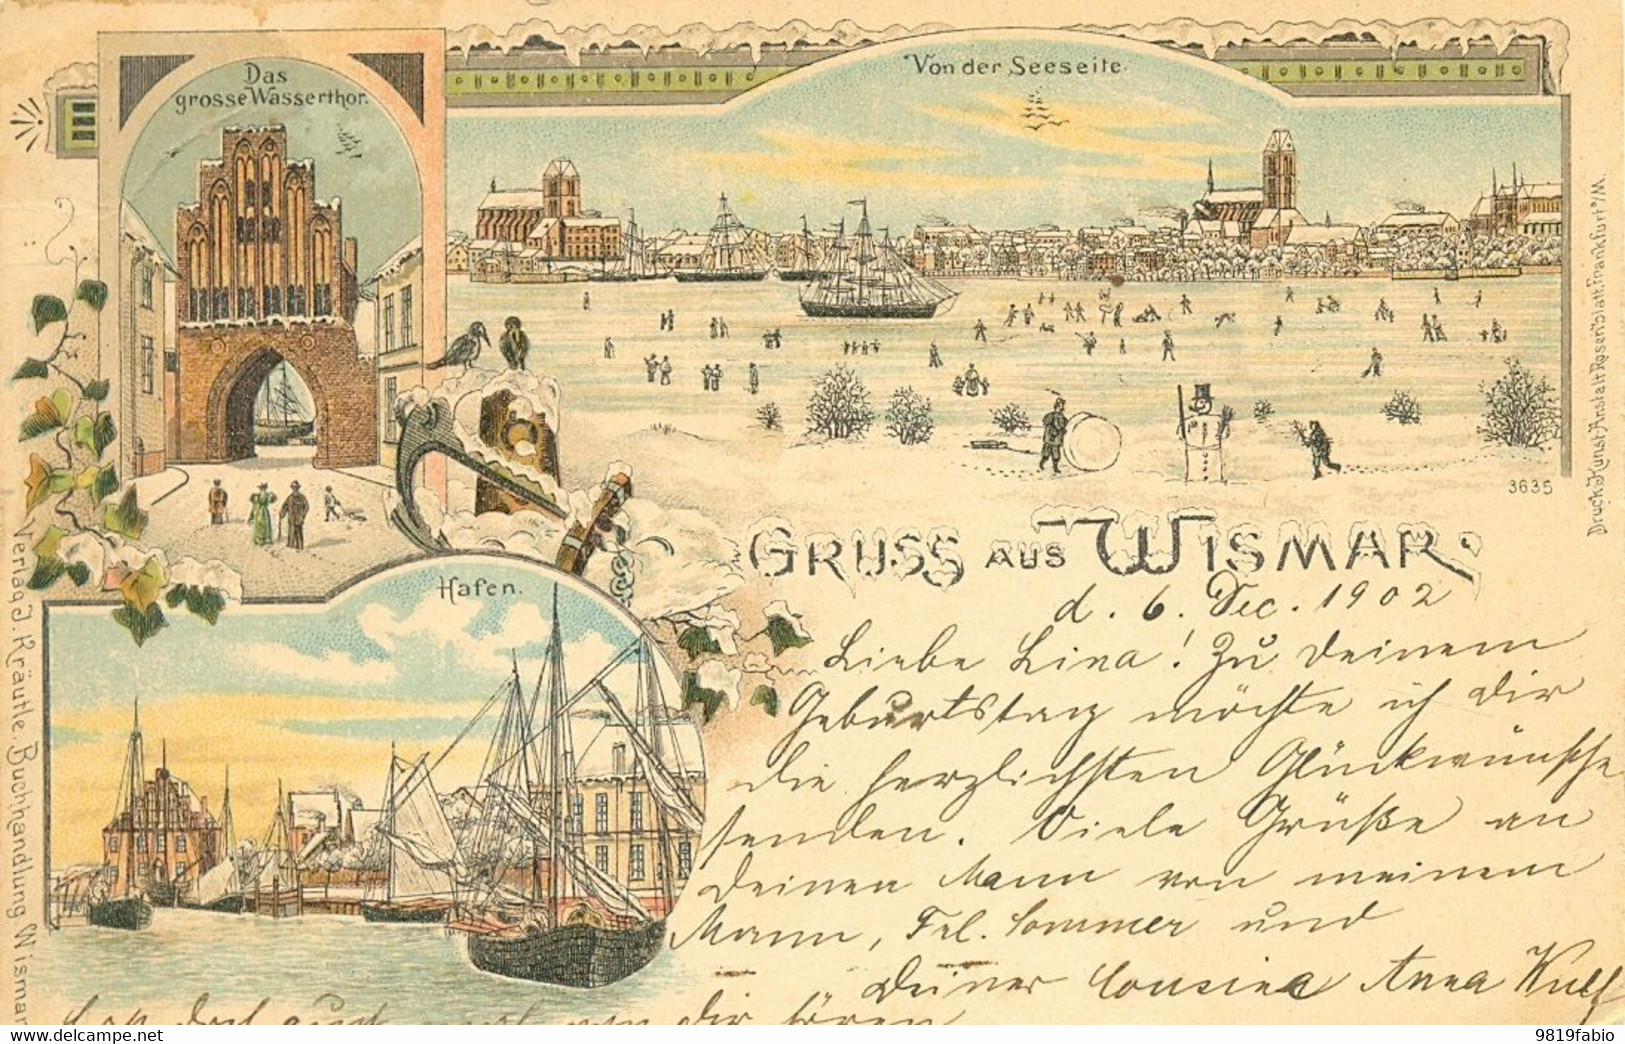 Das
grosse Wasserthor.
Von der Seeseite.
3635
Druck v. Kunst-Anstalt Rosenblatt, Frankfurt a/M.
Verlag J. Kräutle, Buchhandlung Wismar
Hafen.
GRUSS AUS WISMAR.
d. 6. Dec. 1902
Liebe Lina! Zu Deinem
Geburtstag möchte ich Dir
die herzlichsten Glückwünsche
senden. Viele Grüße an
Deinen Mann von meinem
Mann, Frl. Sommer und
Deiner Cousine Anna
Laß doch auch mal von Dir hören
9819fabio